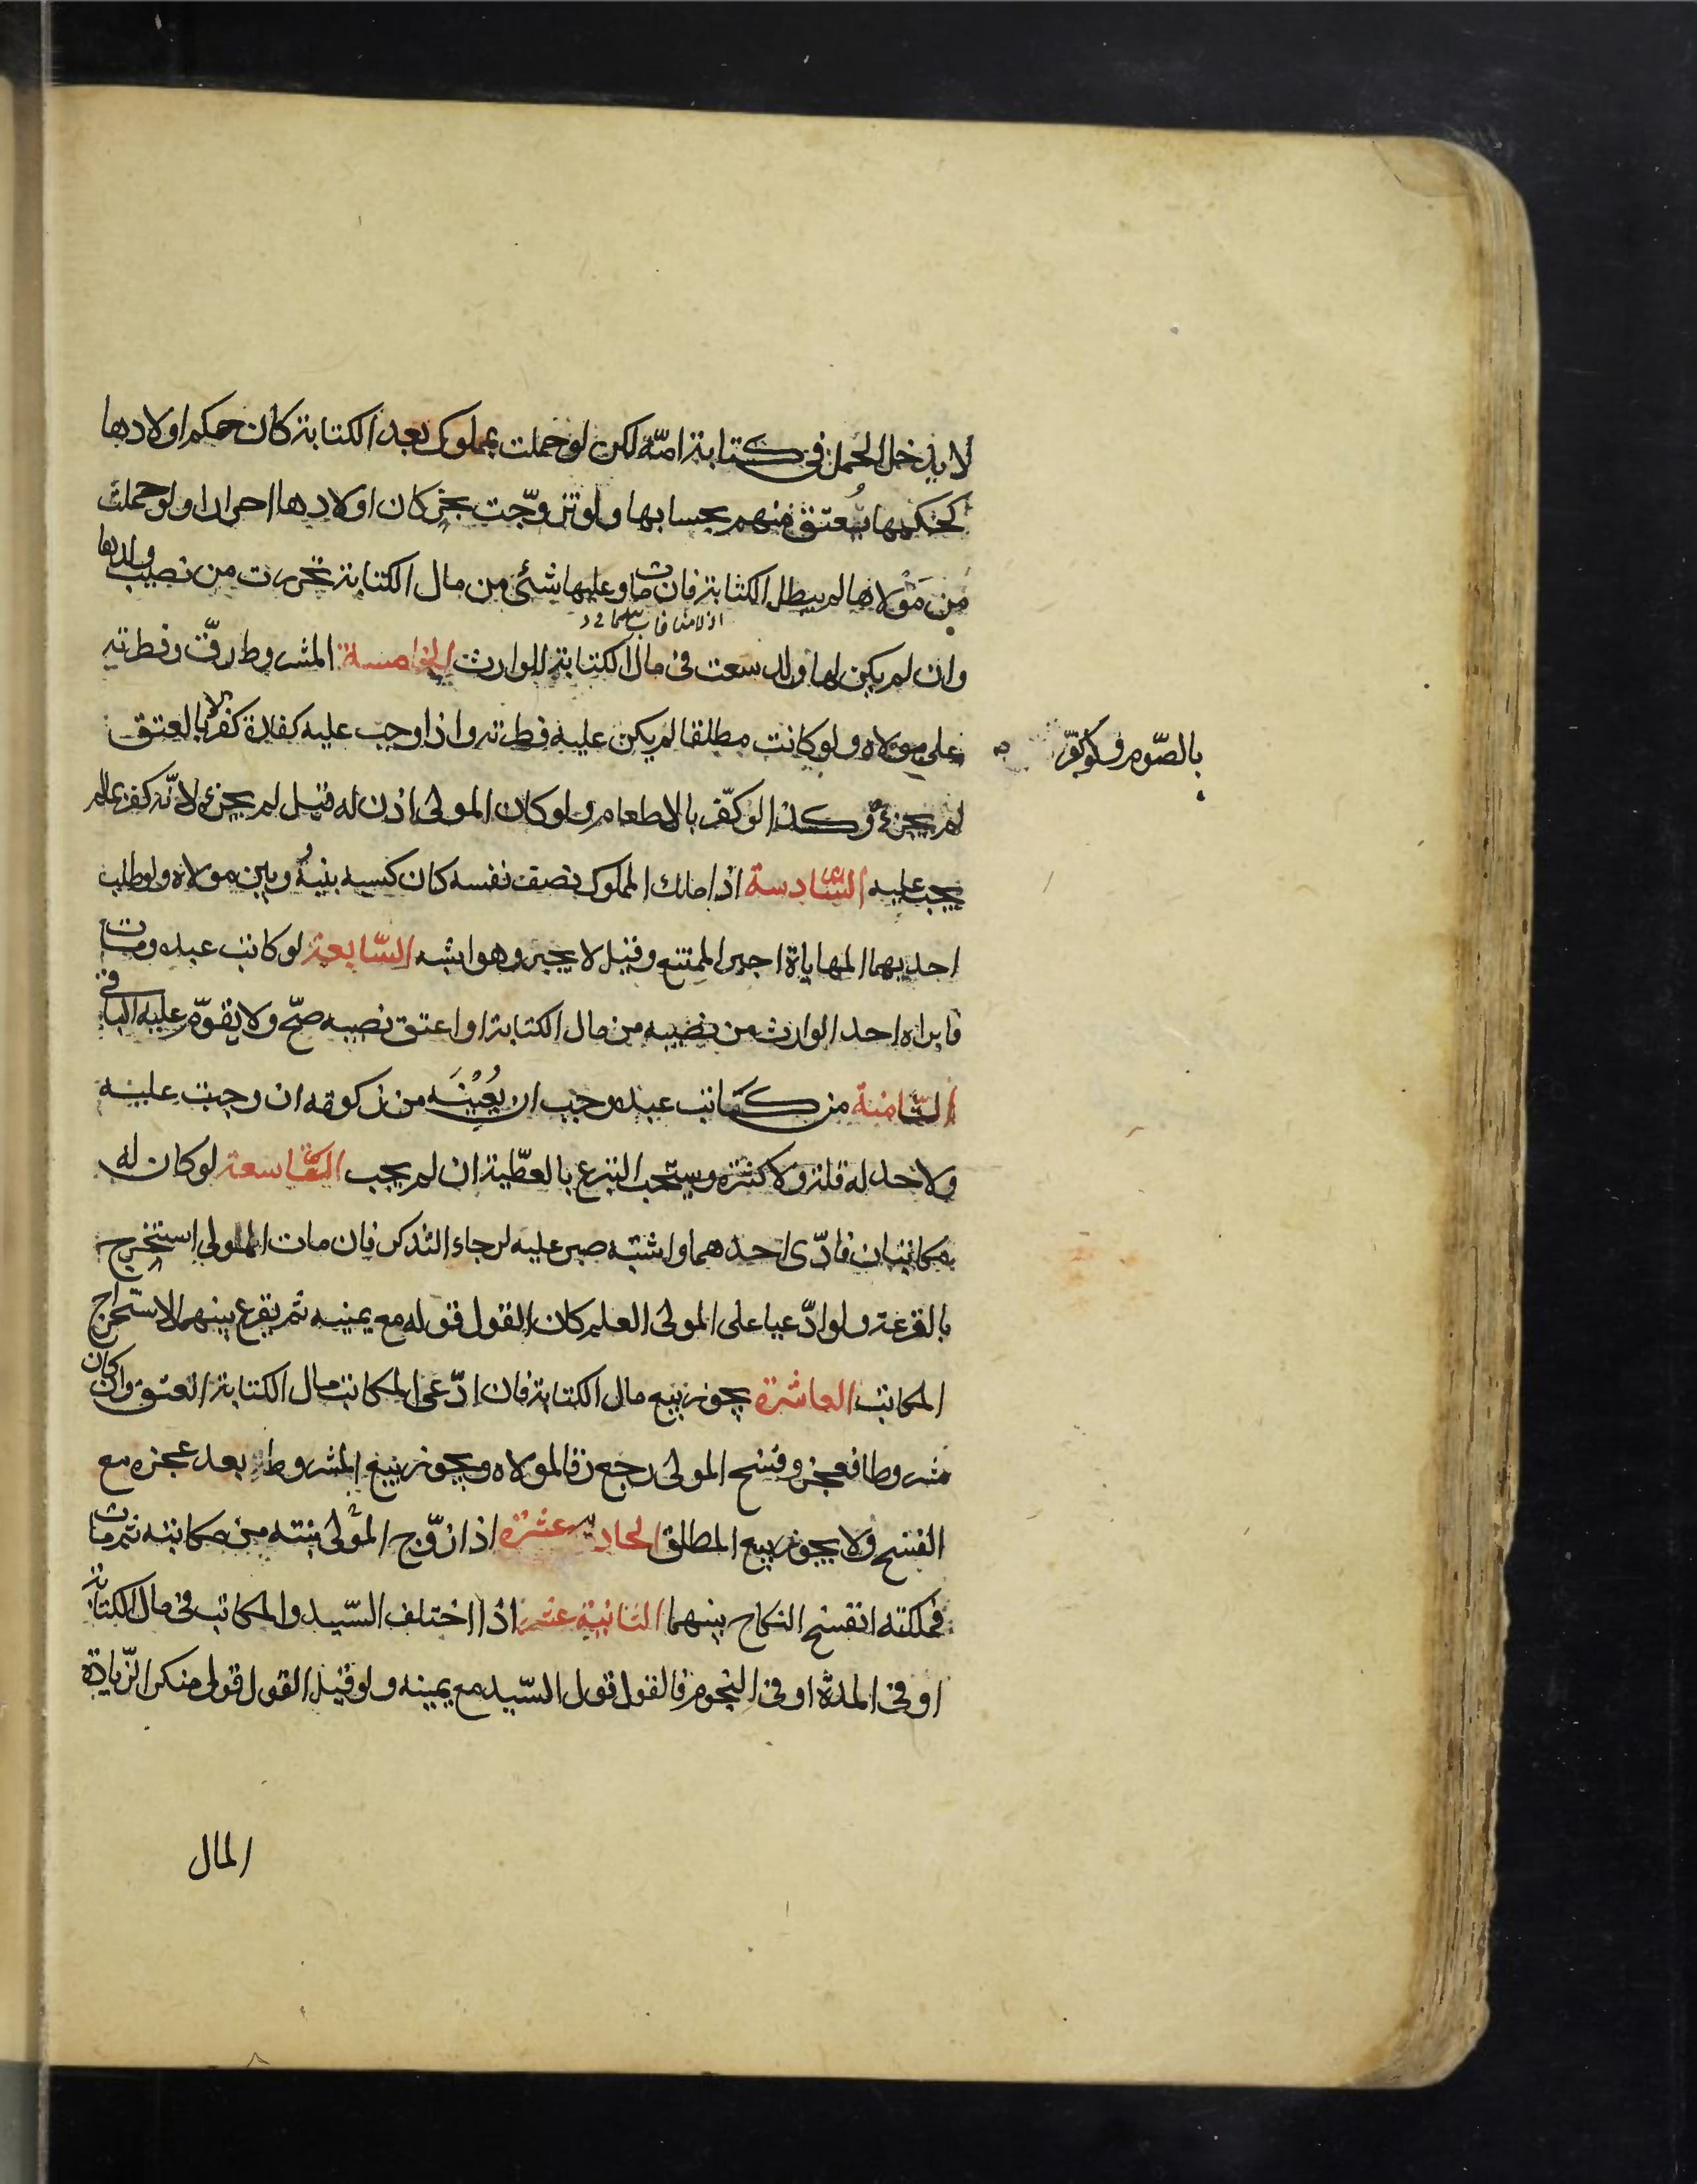 لا يدخل الحمل في كتابة امّه لكن لو حملت بمملوك بعد الكتابة كان حكم اولادها
كحكمها يُعتق منهم بحسابها ولو تزوّجت بحرّ كان اولادها احرارا ولو حملت
مِن مَوْلاها لم يبطل الكتابة فان مات وعليها شئ من مال الكتابة تحررت من نصيب ولدها
وان لم يكن لها ولد سعت في مال الكتابة للوارث الخامسة المشروط رقّ وفطرته
على مولاه ولو كانت مطلقا لم يكن عليه فطرته واذا وجب عليه كفارة كفر بالعتق
بالصّوم فلو كفّر
لم يجزئ وكذا لو كفّر بالاطعام ولو كان المولى اذن له قيل لم يجزئ لانّه كفر بما لم
يجب عليه السّادسة اذا ملك المملوك نصف نفسه كان كسبه بينهُ وبين مولاه ولو طلب
احديهما المهاياة اجبر الممتنع وقيل لا يجبر وهو اشبه السّابعة لو كاتب عبده ومات
فابراه احد الوارث من نصيبه من مال الكتابة او اعتق نصيبه صحّ ولا يقوّم عليه الباقي
الثّامنة من كتاتب عبده وجب ان يُعْينَه من زكوته ان وجبت عليه
ولا حد له قلة ولا كثرة ويستحب التبرع بالعطّية ان لم يجب التّاسعة لو كان له
مكاتبان فادّى احدهما واشتبه صبر عليه لرجاء التذكر فان مات المولى استخرج
بالقرعة ولو ادّعيا على المولى العلم كان القول قوله مع يمينه ثم يقرع بينهما لاستخراج
المكاتب العاشرة يجوز بيع مال الكتابة فان ادّعى المكاتب مال الكتابة انعتق وان كان
مشروطا فعجز وفسخ المولى رجع رقا لمولاه ويجوز بيع المشروط بعد عجزه مع
الفسخ ولا يجوز بيع المطلق الحادية عشرة اذا زوّج المولى بنته من مكاتبه ثم مات
فملكته انفسخ النكاح بينهما الثانية عشر اذا اختلف السّيد والمكاتب في مال الكتابة
او في المدة او في النجوم فالقول قول السّيد مع يمينه ولو قيل القول قولى منكر الزّيادة
المال